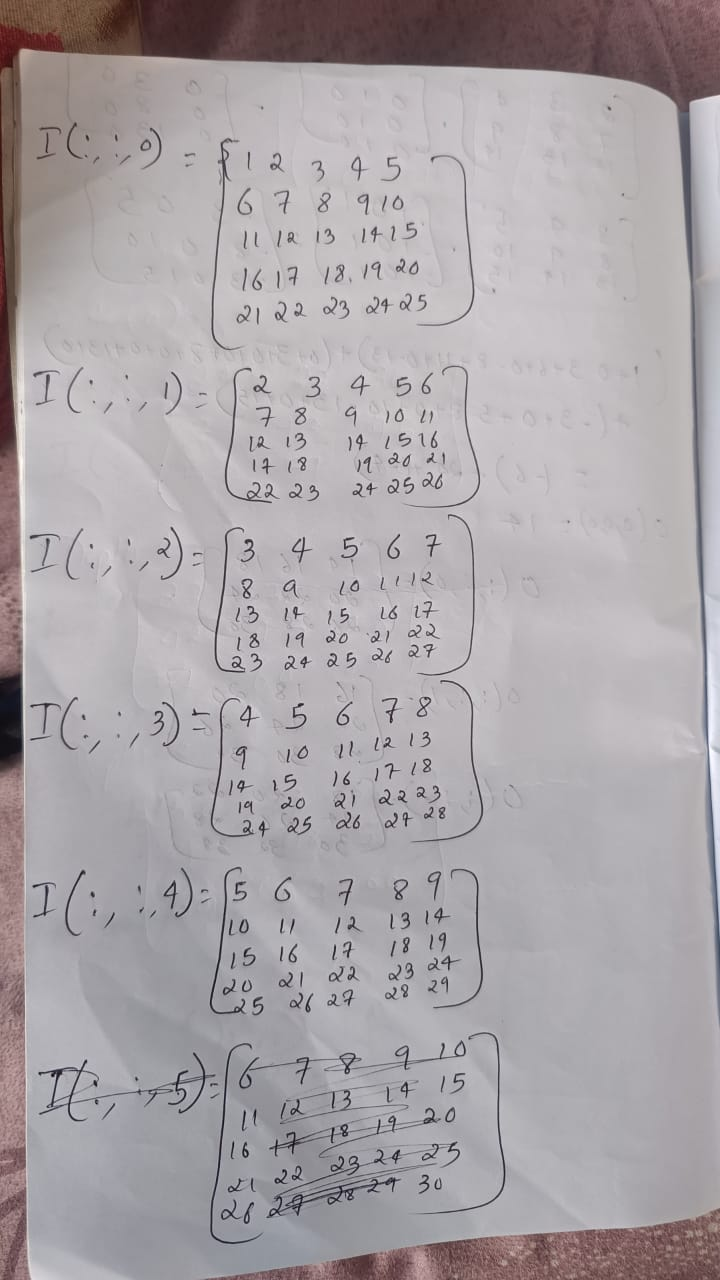 I(:,:,0) = [1 2 3 4 5
6 7 8 9 10
11 12 13 14 15
16 17 18 19 20
21 22 23 24 25]
I(:,:,1) = [2 3 4 5 6
7 8 9 10 11
12 13 14 15 16
17 18 19 20 21
22 23 24 25 26]
I(:,:,2) = [3 4 5 6 7
8 9 10 11 12
13 14 15 16 17
18 19 20 21 22
23 24 25 26 27]
I(:,:,3) = [4 5 6 7 8
9 10 11 12 13
14 15 16 17 18
19 20 21 22 23
24 25 26 27 28]
I(:,:,4) = [5 6 7 8 9
10 11 12 13 14
15 16 17 18 19
20 21 22 23 24
25 26 27 28 29]
I(:,:,5) = [6 7 8 9 10
11 12 13 14 15
16 17 18 19 20
21 22 23 24 25
26 27 28 29 30]